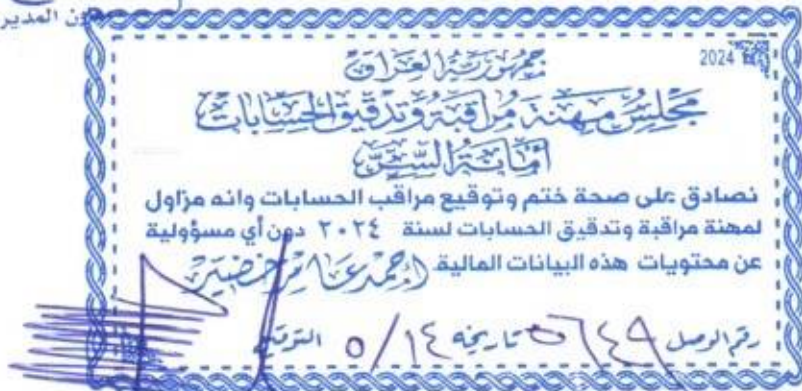 ون المدير
2024
جمهورية العراق
مجلس مهنة مراقبة وتدقيق الحسابات
أمانة السر
نصادق على صحة ختم وتوقيع مراقب الحسابات وانه مزاول
لمهنة مراقبة وتدقيق الحسابات لسنة ٢٠٢٤ دون أي مسؤولية
عن محتويات هذه البيانات المالية (احمد عامر خضير
رقم الوصل ٥٦٤٩ تاريخه ٥/١٤ التوقيع